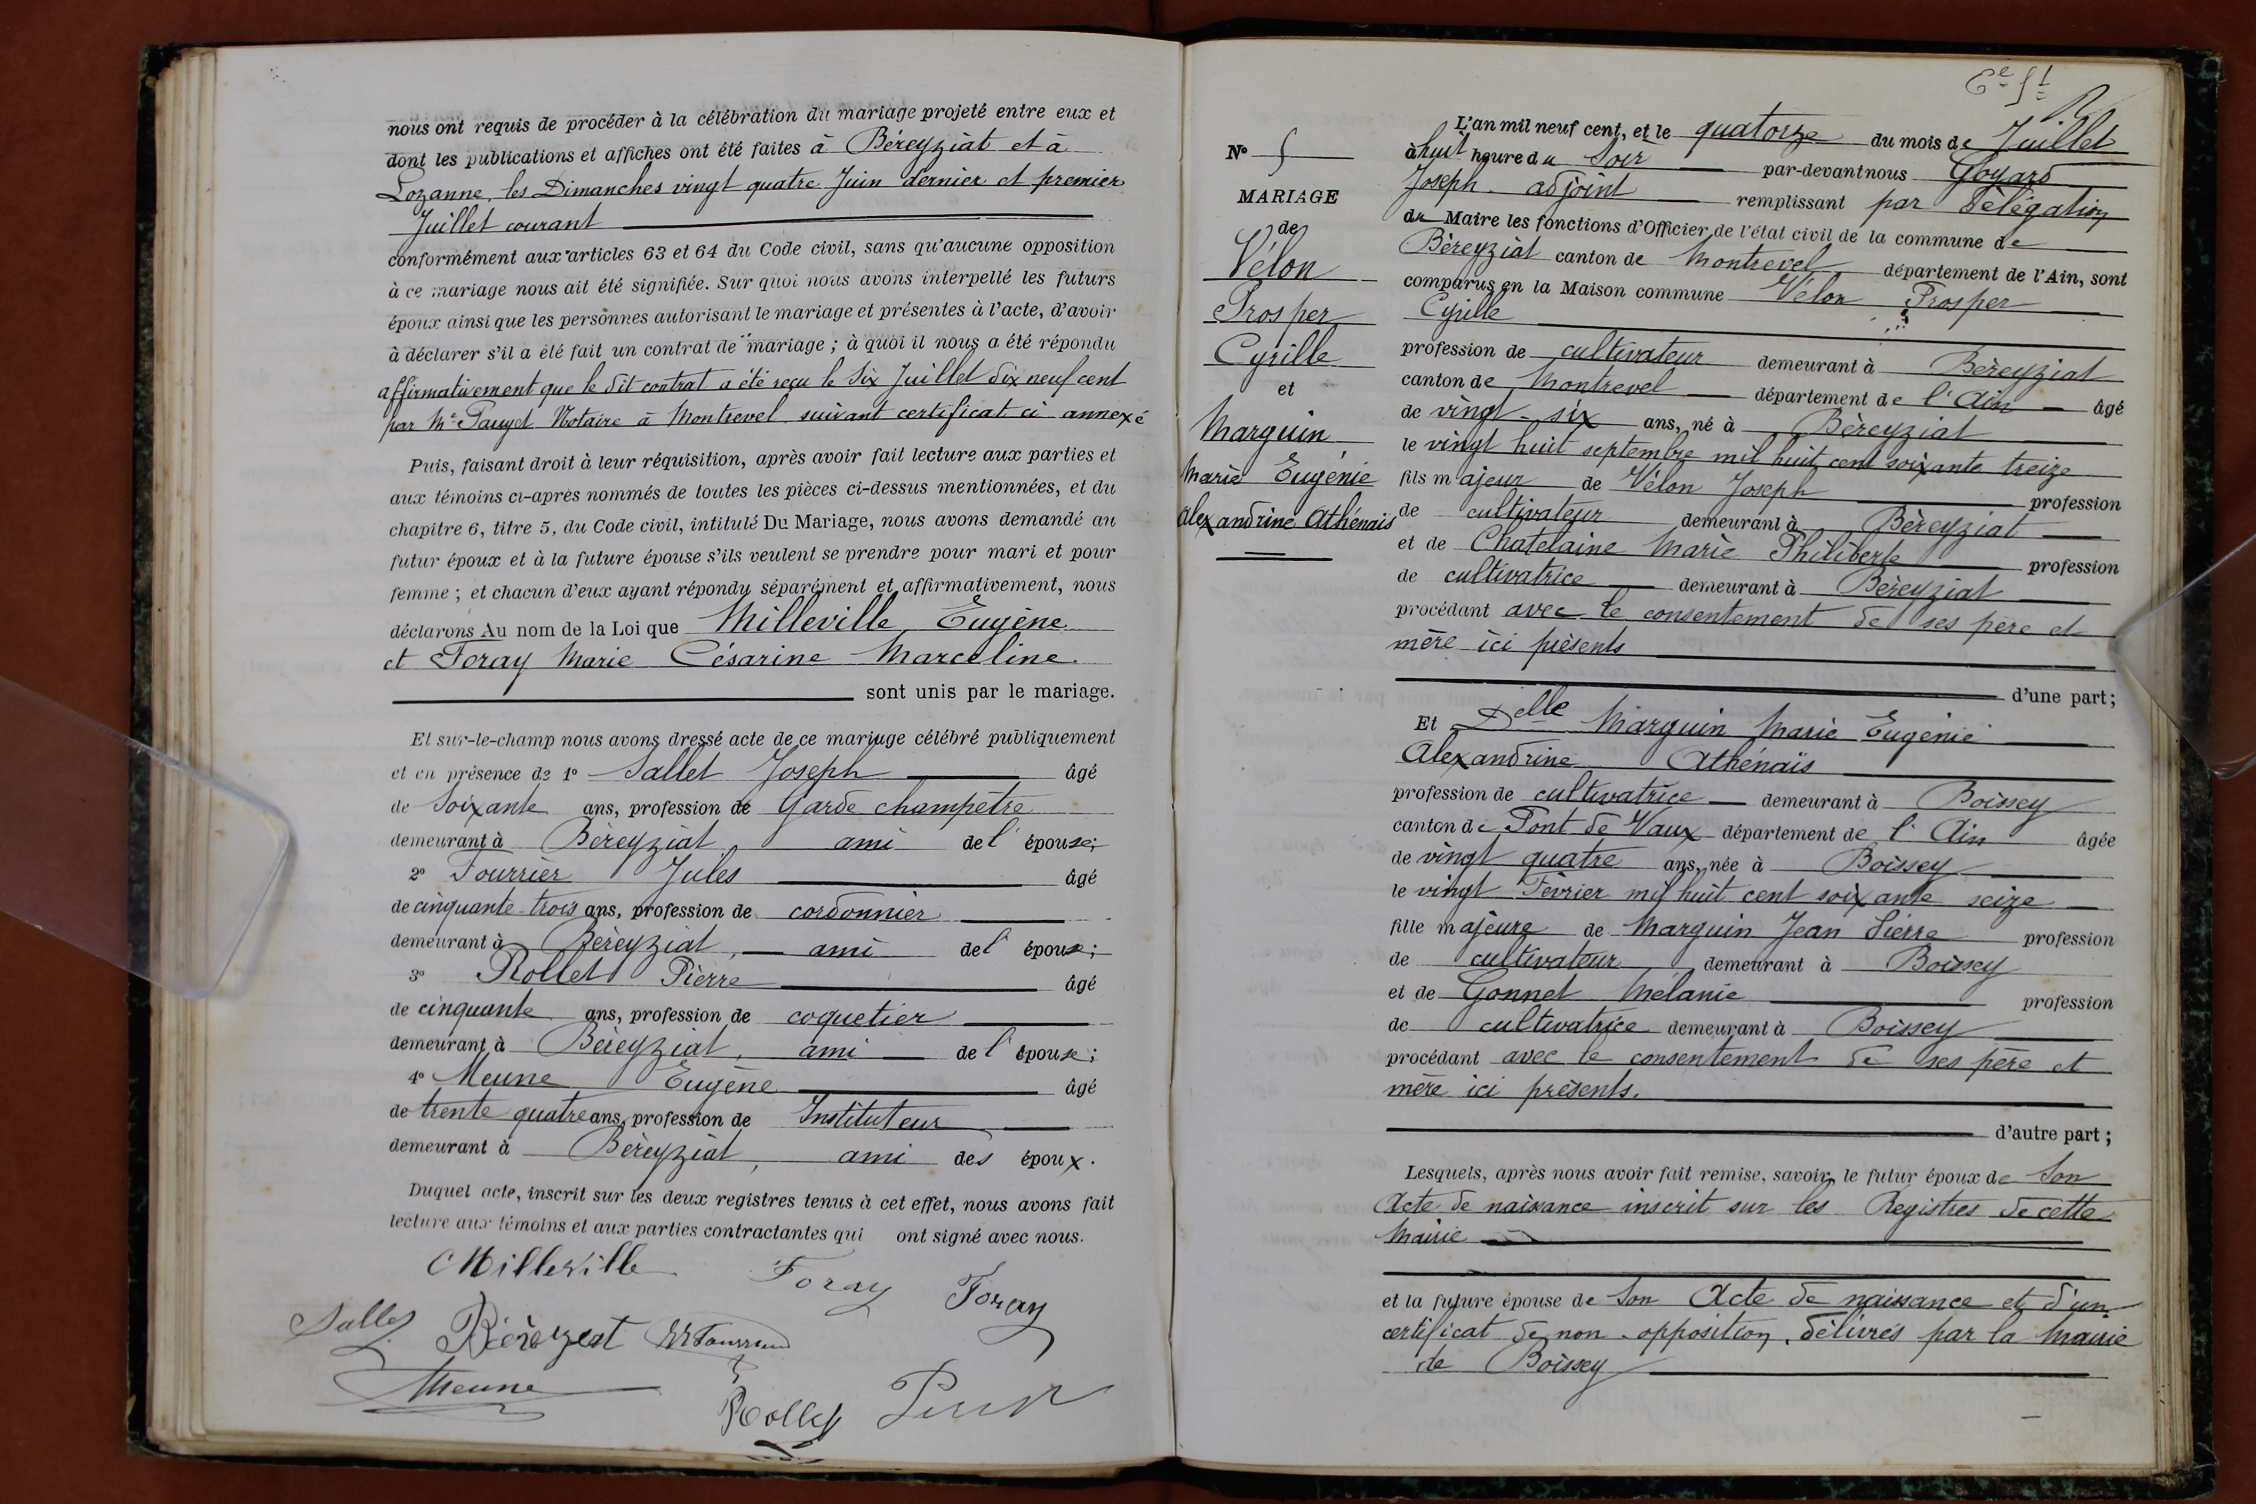 nous ont requis de procéder à la célébration du mariage projeté entre eux et
dont les publications et affiches ont été faites à Béreyziat et à
Lozanne, les Dimanches vingt quatre Juin dernier et premier
Juillet courant
conformément aux articles 63 et 64 du Code civil, sans qu'aucune opposition
à ce mariage nous ait été signifiée. Sur quoi nous avons interpellé les futurs
époux ainsi que les personnes autorisant le mariage et présentes à l'acte, d'avoir
à déclarer s'il a été fait un contrat de mariage ; à quoi il nous a été répondu
affirmativement que le dit contrat a été reçu le Six Juillet dix neuf cent
par Me Pauget Notaire à Montrevel suivant certificat ci annexé
Puis, faisant droit à leur réquisition, après avoir fait lecture aux parties et
aux témoins ci-après nommés de toutes les pièces ci-dessus mentionnées, et du
chapitre 6, titre 5, du Code civil, intitulé Du Mariage, nous avons demandé au
futur époux et à la future épouse s'ils veulent se prendre pour mari et pour
femme ; et chacun d'eux ayant répondu séparément et affirmativement, nous
déclarons Au nom de la Loi que Milleville Eugène
et Foray Marie Césarine Marceline.
sont unis par le mariage.
Et sur-le-champ nous avons dressé acte de ce mariage célébré publiquement
et en présence de 1° Sallet Joseph âgé
de Soixante ans, profession de Garde champêtre
demeurant à Béreyziat ami de l' épouse;
2° Fourrier Jules âgé
de cinquante trois ans, profession de cordonnier
demeurant à Béreyziat, ami de l' épouse;
3° Rollet Pierre âgé
de cinquante ans, profession de coquetier
demeurant à Béreyziat, ami de l' épouse;
4° Meune Eugène âgé
de trente quatre ans, profession de Instituteur
demeurant à Béreyziat, ami des époux.
Duquel acte, inscrit sur les deux registres tenus à cet effet, nous avons fait
lecture aux témoins et aux parties contractantes qui ont signé avec nous.
Milleville Foray Foray
Sallet
Meune
Rollet
N° 5
MARIAGE
de
Vélon
Prosper
Cyrille
et
Marguin
Marie Eugénie
Alexandrine Athénais
L'an mil neuf cent, et le quatorze du mois de Juillet
à huit heure du Soir par-devant nous Goyard
Joseph adjoint remplissant par délégation
du Maire les fonctions d'Officier de l'état civil de la commune de
Béreyziat canton de Montrevel département de l'Ain, sont
comparus en la Maison commune Vélon Prosper
Cyrille
profession de cultivateur demeurant à Béreyziat
canton de Montrevel département de l'Ain âgé
de vingt-six ans, né à Béreyziat
le vingt huit septembre mil huit cent soixante treize
fils majeur de Vélon Joseph profession
de cultivateur demeurant à Béreyziat
et de Chatelaine Marie Philiberte profession
de cultivatrice demeurant à Béreyziat
procédant avec le consentement de ses père et
mère ici présents
d'une part;
Et Delle Marguin Marie Eugénie
Alexandrine Athénaïs
profession de cultivatrice demeurant à Boissey
canton de Pont de Vaux département de l'Ain âgée
de vingt quatre ans, née à Boissey
le vingt Février mil huit cent soixante seize
fille majeure de Marguin Jean Pierre profession
de cultivateur demeurant à Boissey
et de Gonnet Mélanie profession
de cultivatrice demeurant à Boissey
procédant avec le consentement de ses père et
mère ici présents.
d'autre part;
Lesquels, après nous avoir fait remise, savoir, le futur époux de Son
Acte de naissance inscrit sur les Registres de cette
Mairie
et la future épouse de Son Acte de naissance et d'un
certificat de non-opposition, délivrés par la Mairie
de Boissey